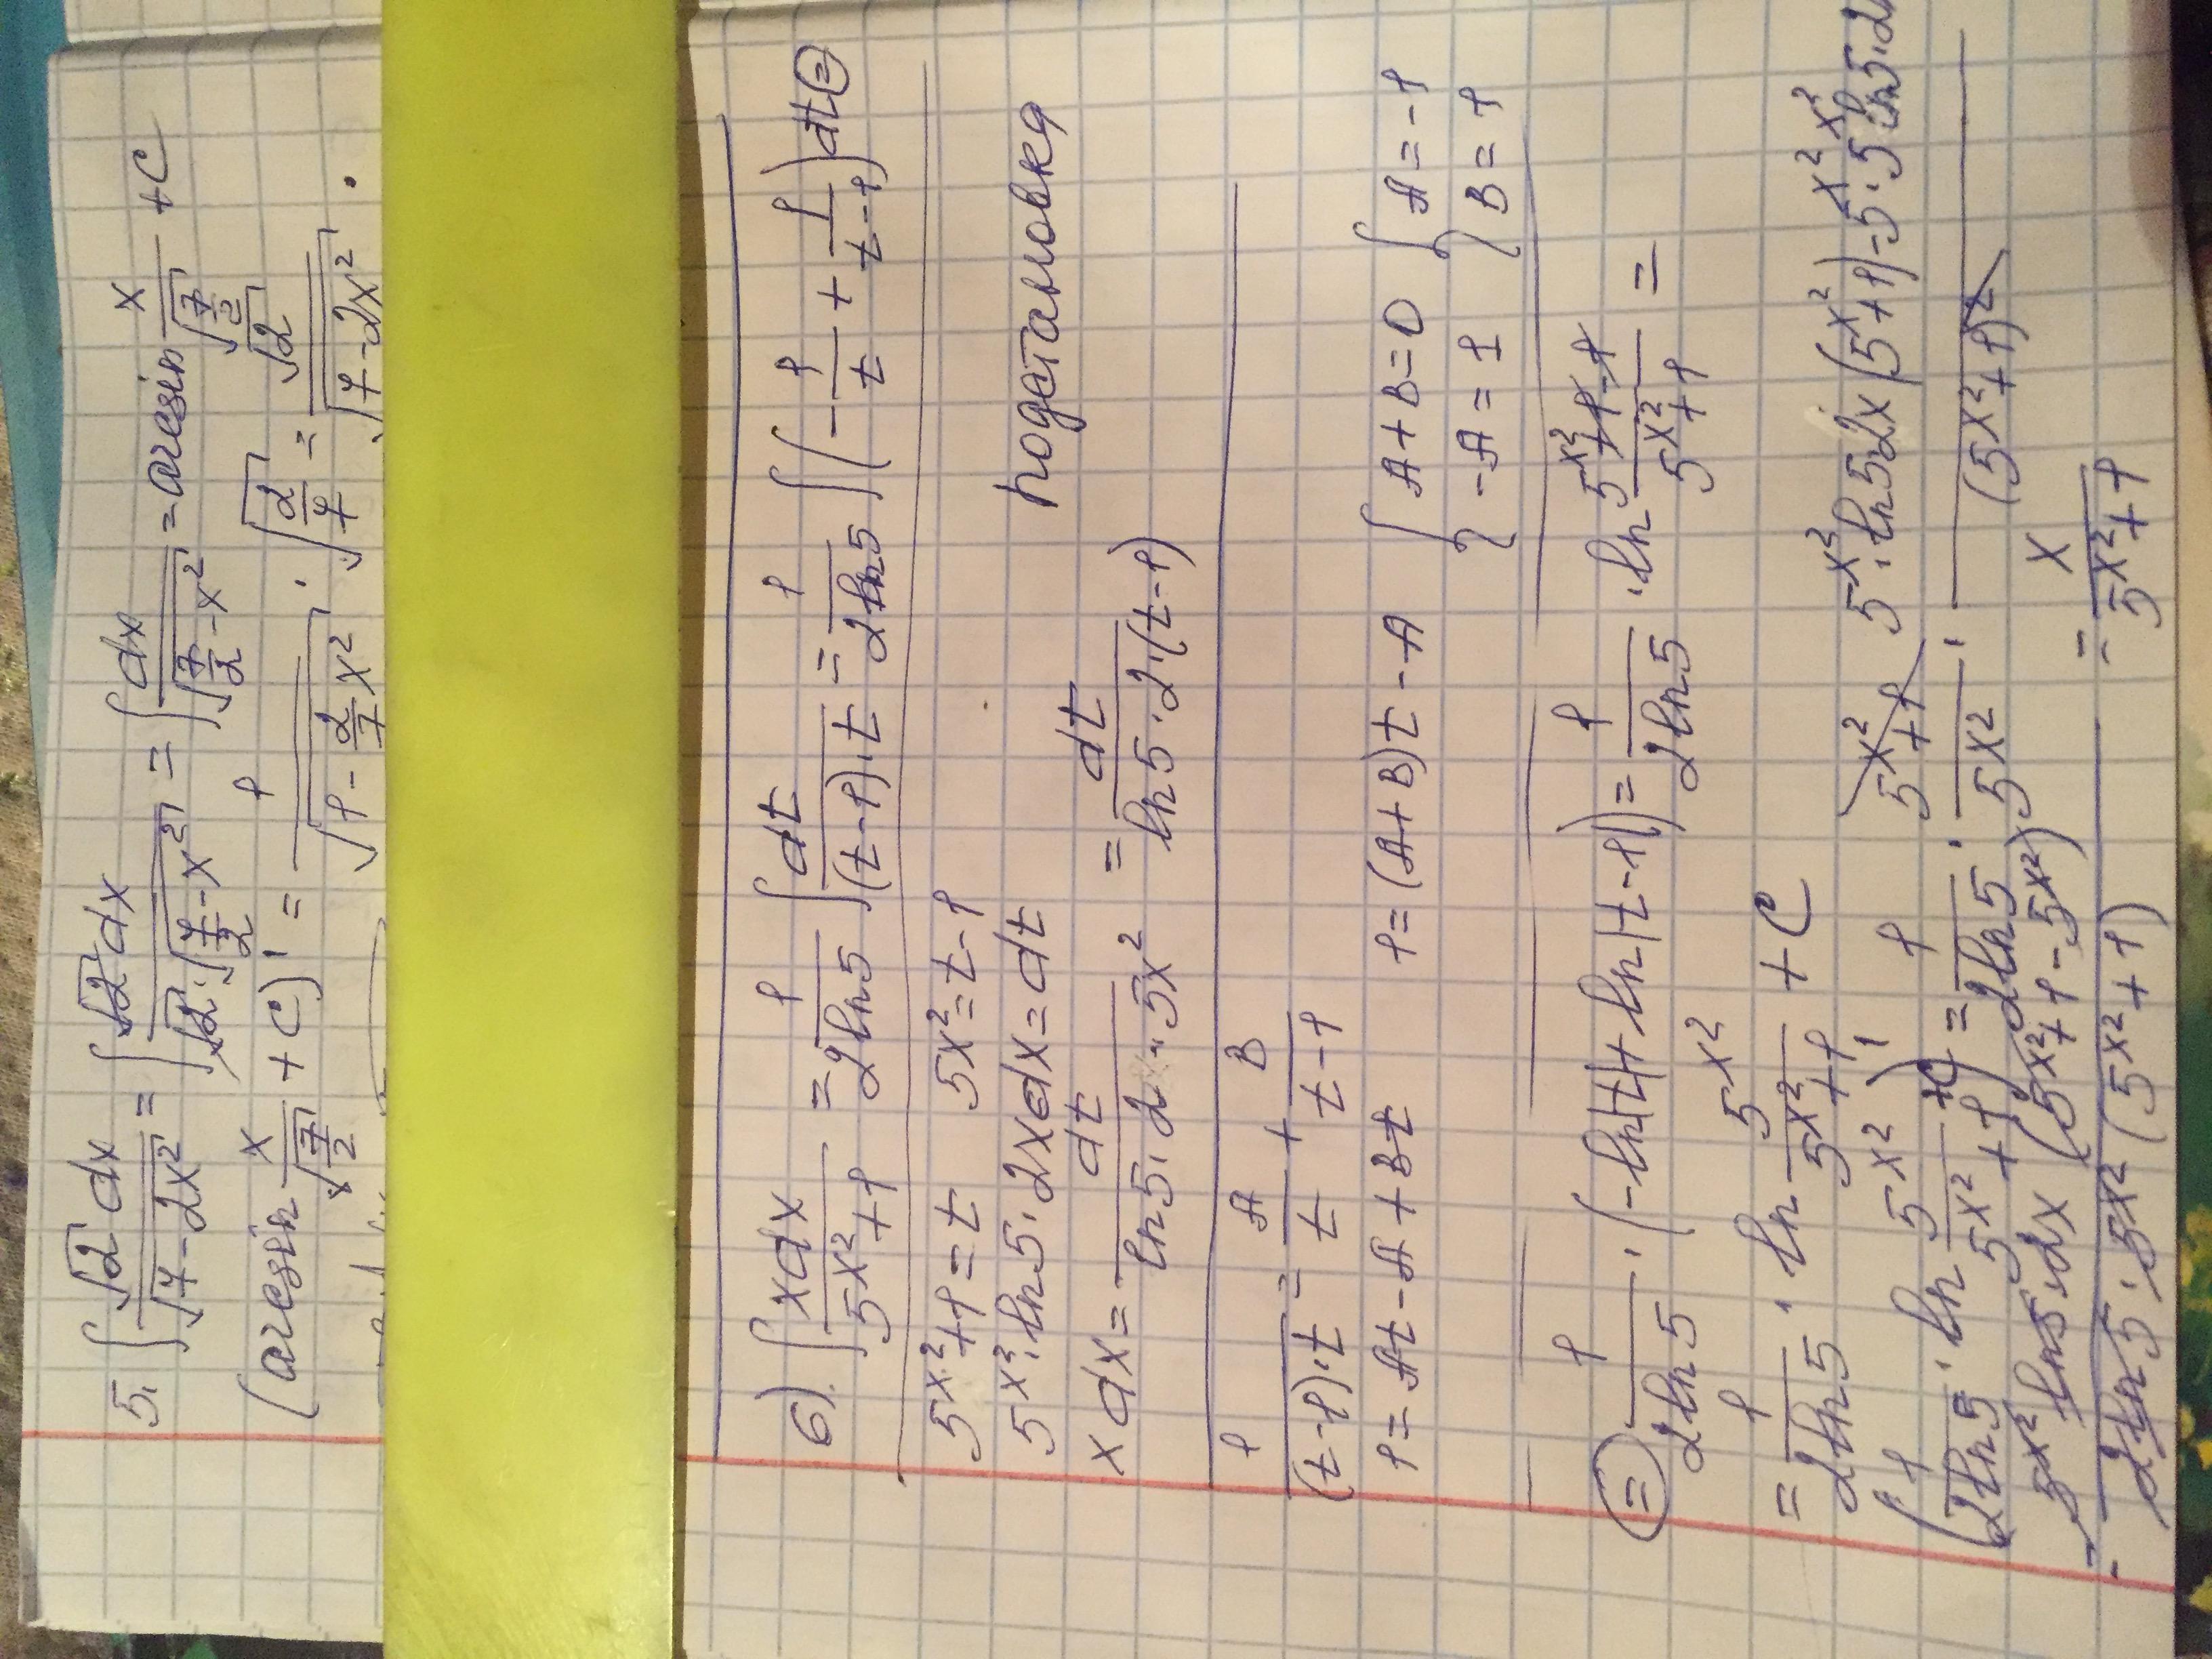 5. ∫ √2 dx / √(7-2x²) = ∫ √2 dx / (√2 · √(7/2 - x²)) = ∫ dx / √(7/2 - x²) = arcsin x/√(7/2) + C
(arcsin x/√(7/2) + C)' = 1/√(1 - 2/7 x²) · √(2/7) = √2/√(7-2x²) .
6) ∫ xdx / (5^(x²)+1) = 1/(2ln5) ∫ dt/((t-1)·t) = 1/(2ln5) ∫ (-1/t + 1/(t-1)) dt (=)
5^(x²)+1 = t 5^(x²) = t-1
5^(x²)·ln5·2xdx = dt подстановка
xdx = dt/(ln5·2·5^(x²)) = dt/(ln5·2·(t-1))
1/((t-1)·t) = A/t + B/(t-1)
1 = At - A + Bt 1 = (A+B)t - A { A+B=0 -A=1 { A=-1 B=1
(=) 1/(2ln5) · (-ln|t| + ln|t-1|) = 1/(2ln5) · ln (5^(x²)+1-1)/(5^(x²)+1) =
= 1/(2ln5) · ln 5^(x²)/(5^(x²)+1) + C
(1/(2ln5) · ln 5^(x²)/(5^(x²)+1) + C)' = 1/(2ln5) · (5^(x²)+1)/5^(x²) · (5^(x²)·ln5·2x(5^(x²)+1) - 5^(x²)·5^(x²)·ln5·2x)/(5^(x²)+1)²
= 5^(x²)·ln5·2x (5^(x²)+1-5^(x²)) / (2ln5·5^(x²)(5^(x²)+1)) = x/(5^(x²)+1)